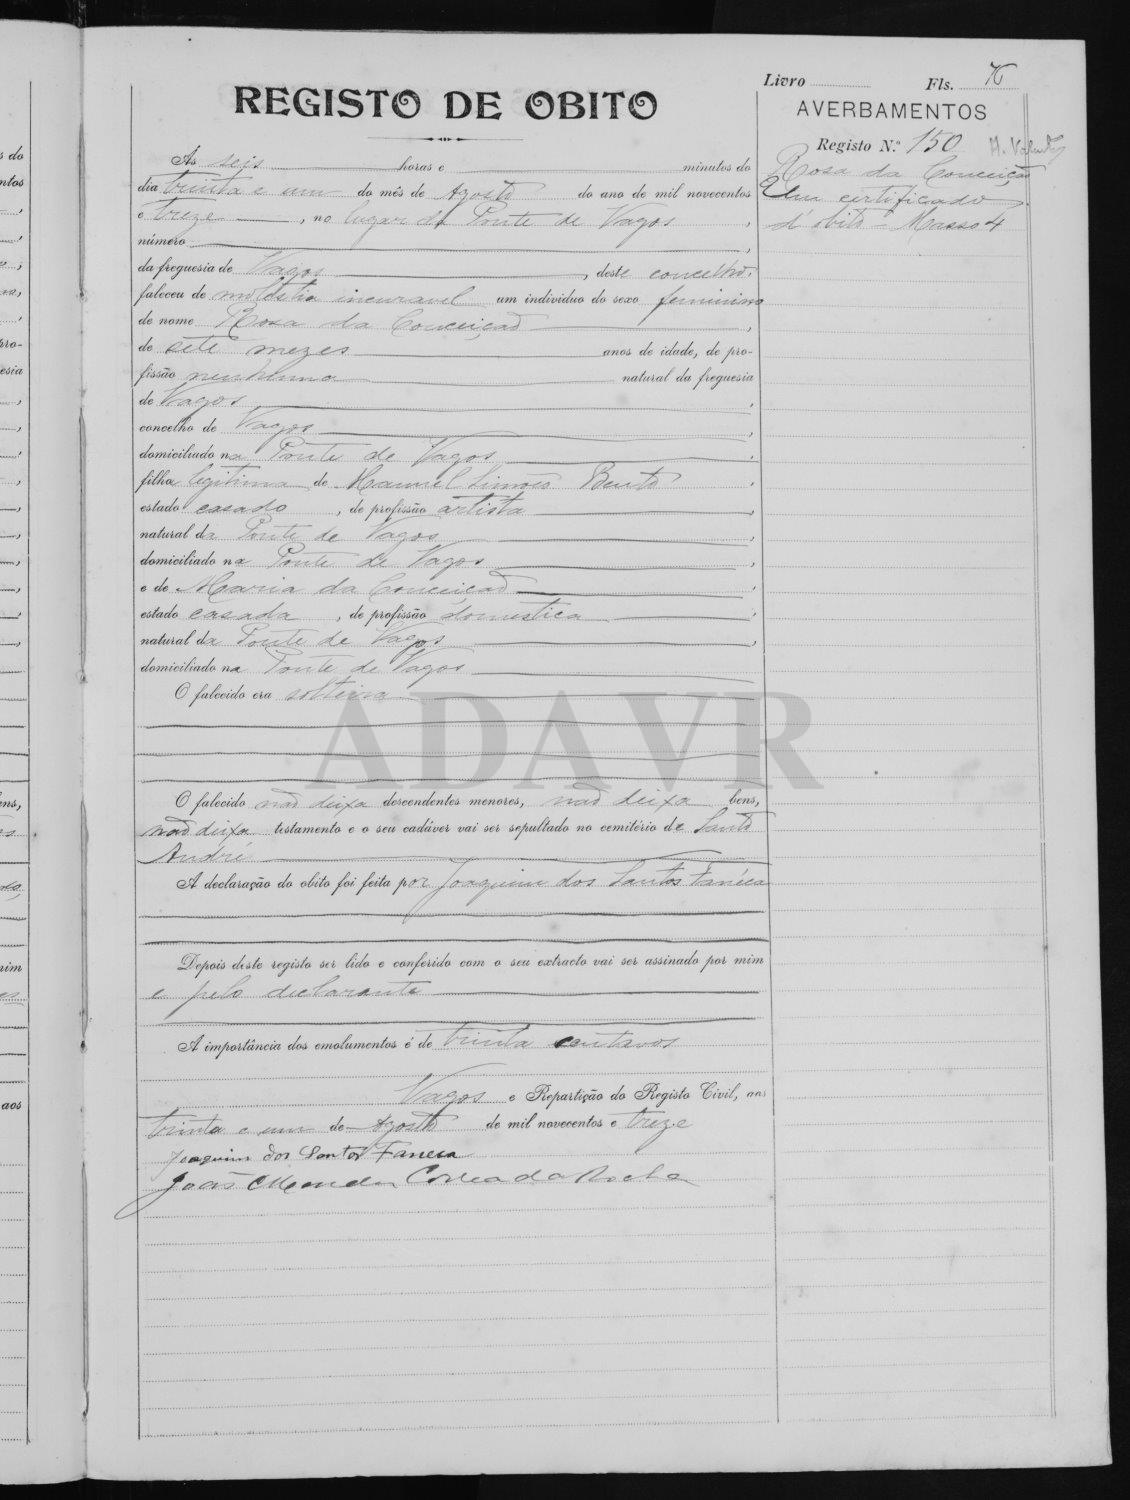 Livro Fls. 76
REGISTO DE OBITO
AVERBAMENTOS
Registo N.º 150
Rosa da Conceição
Um certificado
d'obito - Masso 4
As seis horas e minutos do
dia trinta e um do mês de Agosto do ano de mil novecentos
e treze, no lugar da Ponte de Vagos,
número
da freguesia de Vagos, deste concelho,
faleceu de molestia incuravel um individuo do sexo feminino
de nome Rosa da Conceição,
de sete mezes anos de idade, de pro-
fissão nenhuma natural da freguesia
de Vagos,
concelho de Vagos,
domiciliado na Ponte de Vagos,
filha legitima de Manuel Simões Bento,
estado casado, de profissão artista,
natural da Ponte de Vagos,
domiciliado na Ponte de Vagos,
e de Maria da Conceição,
estado casada, de profissão domestica,
natural da Ponte de Vagos,
domiciliado na Ponte de Vagos
O falecido era solteira
ADAVR
O falecido não deixa descendentes menores, não deixa bens,
não deixa testamento e o seu cadáver vai ser sepultado no cemitério de Santo
André
A declaração do obito foi feita por Joaquim dos Santos Faneca
Depois deste registo ser lido e conferido com o seu extracto vai ser assinado por mim
e pelo declarante
A importância dos emolumentos é de trinta centavos
Vagos e Repartição do Registo Civil, aos
trinta e um de Agosto de mil novecentos e treze
Joaquim dos Santos Faneca
João Mendes Correa da Rocha